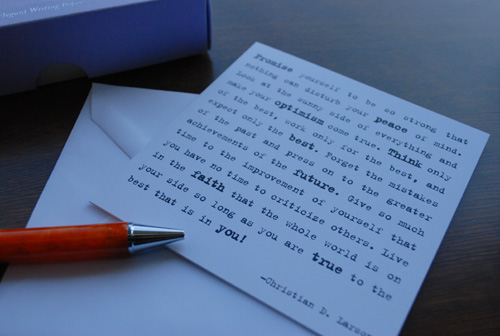 Elegant Writing
Promise yourself to be so strong that
nothing can disturb your peace of mind.
Look at the sunny side of everything and
make your optimism come true. Think only
of the best, work only for the best, and
expect only the best. Forget the mistakes
of the past and press on to the greater
achievements of the future. Give so much
time to the improvement of yourself that
you have no time to criticize others. Live
in the faith that the whole world is on
your side so long as you are true to the
best that is in you!
—Christian D. Larson